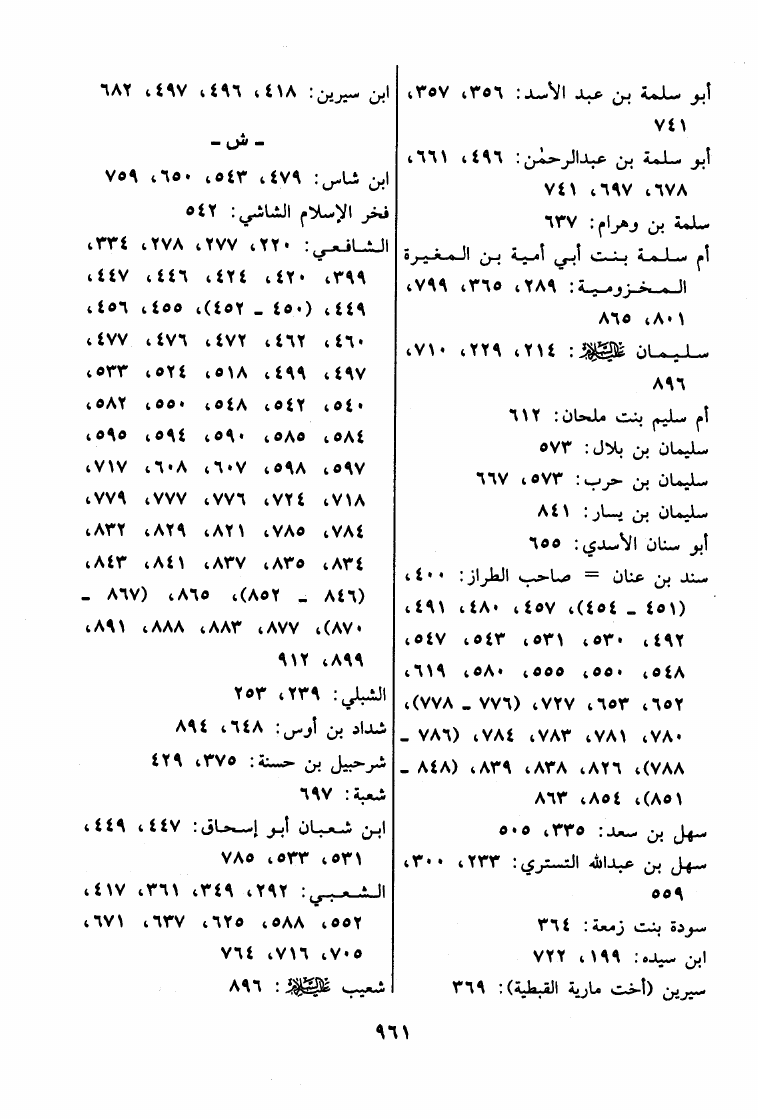 أبو سلمة بن عبد الأسد: ٣٥٦، ٣٥٧،
٧٤١
أبو سلمة بن عبدالرحمٰن: ٤٩٦، ٦٦١،
٦٧٨، ٦٩٧، ٧٤١
سلمة بن وهرام: ٦٣٧
أم سلمة بنت أبي أمية بن المغيرة
المخزومية: ٢٨٩، ٣٦٥، ٧٩٩،
٨٠١، ٨٦٥
سليمان عليه السلام: ٢١٤، ٢٢٩، ٧١٠،
٨٩٦
أم سليم بنت ملحان: ٦١٢
سليمان بن بلال: ٥٧٣
سليمان بن حرب: ٥٧٣، ٦٦٧
سليمان بن يسار: ٨٤١
أبو سنان الأسدي: ٦٥٥
سند بن عنان = صاحب الطراز: ٤٠٠،
(٤٥١ ـ ٤٥٤)، ٤٥٧، ٤٨٠، ٤٩١،
٤٩٢، ٥٣٠، ٥٣١، ٥٤٣، ٥٤٧،
٥٤٨، ٥٥٠، ٥٥٥، ٥٨٠، ٦١٩،
٦٥٢، ٦٥٣، ٧٢٧، (٧٧٦ ـ ٧٧٨)،
٧٨٠، ٧٨١، ٧٨٣، ٧٨٤، (٧٨٦ ـ
٧٨٨)، ٨٢٦، ٨٣٨، ٨٣٩، (٨٤٨ ـ
٨٥١)، ٨٥٤، ٨٦٣
سهل بن سعد: ٣٣٥، ٥٠٥
سهل بن عبدالله التستري: ٢٣٣، ٣٠٠،
٥٥٩
سودة بنت زمعة: ٣٦٤
ابن سيده: ١٩٩، ٧٢٢
سيرين (أخت مارية القبطية): ٣٦٩
ابن سيرين: ٤١٨، ٤٩٦، ٤٩٧، ٦٨٢
ـ ش ـ
ابن شاس: ٤٧٩، ٥٤٣، ٦٥٠، ٧٥٩
فخر الإسلام الشاشي: ٥٤٢
الشافعي: ٢٢٠، ٢٧٧، ٢٧٨، ٣٣٤،
٣٩٩، ٤٢٠، ٤٢٤، ٤٤٦، ٤٤٧،
٤٤٩، (٤٥٠ ـ ٤٥٢)، ٤٥٥، ٤٥٦،
٤٦٠، ٤٦٢، ٤٧٢، ٤٧٦، ٤٧٧،
٤٩٧، ٤٩٩، ٥١٨، ٥٢٤، ٥٣٣،
٥٤٠، ٥٤٢، ٥٤٨، ٥٥٠، ٥٨٢،
٥٨٤، ٥٨٥، ٥٩٠، ٥٩٤، ٥٩٥،
٥٩٧، ٥٩٨، ٦٠٧، ٦٠٨، ٧١٧،
٧١٨، ٧٢٤، ٧٧٦، ٧٧٧، ٧٧٩،
٧٨٤، ٧٨٥، ٨٢١، ٨٢٩، ٨٣٢،
٨٣٤، ٨٣٥، ٨٣٧، ٨٤١، ٨٤٣،
(٨٤٦ ـ ٨٥٢)، ٨٦٥، (٨٦٧ ـ
٨٧٠)، ٨٧٧، ٨٨٣، ٨٨٨، ٨٩١،
٨٩٩، ٩١٢
الشبلي: ٢٣٩، ٢٥٣
شداد بن أوس: ٦٤٨، ٨٩٤
شرحبيل بن حسنة: ٣٧٥، ٤٢٩
شعبة: ٦٩٧
ابن شعبان أبو إسحاق: ٤٤٧، ٤٤٩،
٥٣١، ٥٣٣، ٧٨٥
الشعبي: ٢٩٢، ٣٤٩، ٣٦١، ٤١٧،
٥٥٢، ٥٨٨، ٦٢٥، ٦٣٧، ٦٧١،
٧٠٥، ٧١٦، ٧٦٤
شعيب عليه السلام: ٨٩٦
٩٦١